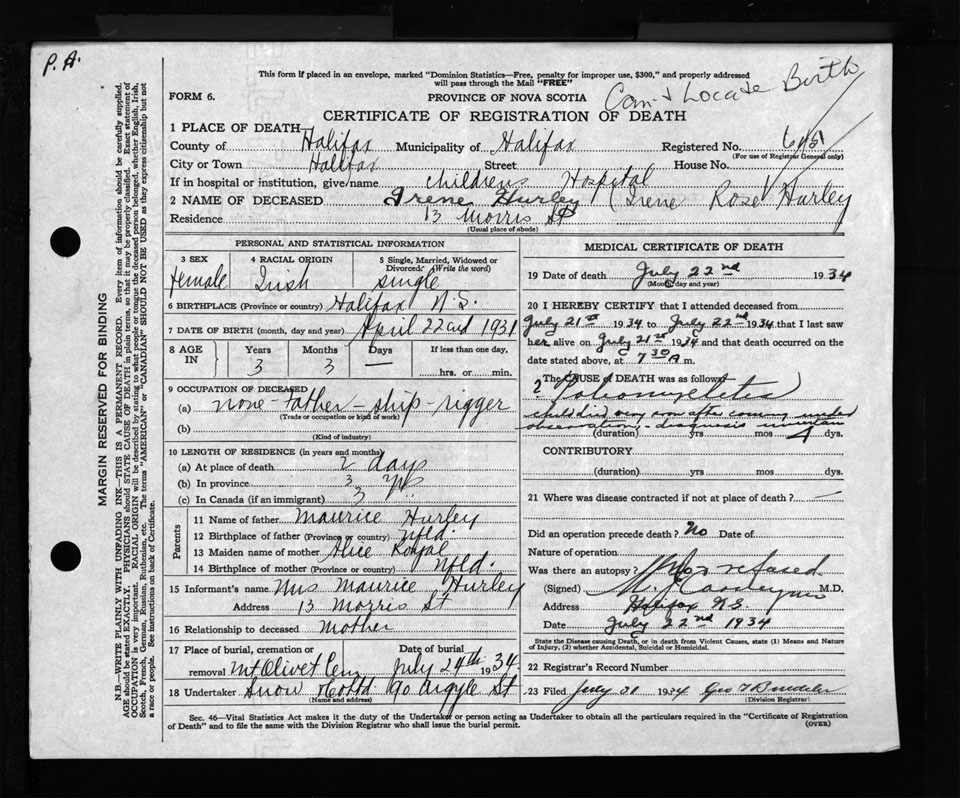 P. A.
This form if placed in an envelope, marked "Dominion Statistics—Free, penalty for improper use, $300," and properly addressed
will pass through the Mail "FREE"
FORM 6.
PROVINCE OF NOVA SCOTIA
Can't Locate Birth
CERTIFICATE OF REGISTRATION OF DEATH
1 PLACE OF DEATH
County of Halifax Municipality of Halifax Registered No.
(For use of Registrar General only)
City or Town Halifax Street House No.
If in hospital or institution, give name Childrens Hospital
2 NAME OF DECEASED Irene Hurley (Irene Rose Hurley
Residence 13 Morris St
(Usual place of abode)
PERSONAL AND STATISTICAL INFORMATION
3 SEX
female
4 RACIAL ORIGIN
Irish
5 Single, Married, Widowed or
Divorced (Write the word)
single
6 BIRTHPLACE (Province or country) Halifax N.S.
7 DATE OF BIRTH (month, day and year) April 22nd 1931
8 AGE IN
Years 3
Months 3
Days —
If less than one day,
hrs. or min.
9 OCCUPATION OF DECEASED
(a) none - father - ship - rigger
(Trade or occupation or kind of work)
(b)
(Kind of industry)
10 LENGTH OF RESIDENCE (in years and months)
(a) At place of death 2 days
(b) In province 3 yrs
(c) In Canada (if an immigrant) 3 "
Parents
11 Name of father Maurice Hurley
12 Birthplace of father (Province or country) Nfld.
13 Maiden name of mother Alice
14 Birthplace of mother (Province or country) Nfld.
15 Informant's name Mrs Maurice Hurley
Address 13 Morris St
16 Relationship to deceased Mother
17 Place of burial, cremation or Date of burial
removal Mt Olivet Cem July 24th 1934
18 Undertaker Snow 90 Argyle St
(Name and address)
MEDICAL CERTIFICATE OF DEATH
19 Date of death July 22nd 1934
(Month, day and year)
20 I HEREBY CERTIFY that I attended deceased from
July 21st 1934 to July 22nd 1934 that I last saw
her alive on July 21st 1934 and that death occurred on the
date stated above, at 7 30 A m.
The CAUSE OF DEATH was as follows:
? Poliomyelitis
child died very soon after coming under
observation, - diagnosis uncertain
(duration) yrs mos dys.
CONTRIBUTORY
(duration) yrs. mos. dys.
21 Where was disease contracted if not at place of death? —
Did an operation precede death? No Date of
Nature of operation
Was there an autopsy? No refused
(Signed) M.D.
Address Halifax N.S.
Date July 22nd 1934
State the Disease causing Death, or in death from Violent Causes, state (1) Means and Nature
of Injury, (2) whether Accidental, Suicidal or Homicidal.
22 Registrar's Record Number
23 Filed July 31 1934 Geo
(Division Registrar)
Sec. 46—Vital Statistics Act makes it the duty of the Undertaker or person acting as Undertaker to obtain all the particulars required in the "Certificate of Registration
of Death" and to file the same with the Division Registrar who shall issue the burial permit. (OVER)
MARGIN RESERVED FOR BINDING
N.B.—WRITE PLAINLY WITH UNFADING INK—THIS IS A PERMANENT RECORD. Every item of information should be carefully supplied.
AGE should be stated EXACTLY. PHYSICIANS should STATE CAUSE OF DEATH in plain terms, so that it may be properly classified. Exact statement of
OCCUPATION is very important. RACIAL ORIGIN will be described by stating to what people or tongue the deceased person belonged, whether English, Irish,
Scotch, French, German, Russian, Ruthenian, etc. The terms "AMERICAN" or "CANADIAN" SHOULD NOT BE USED as they express citizenship but not
a race or people. See instructions on back of Certificate.